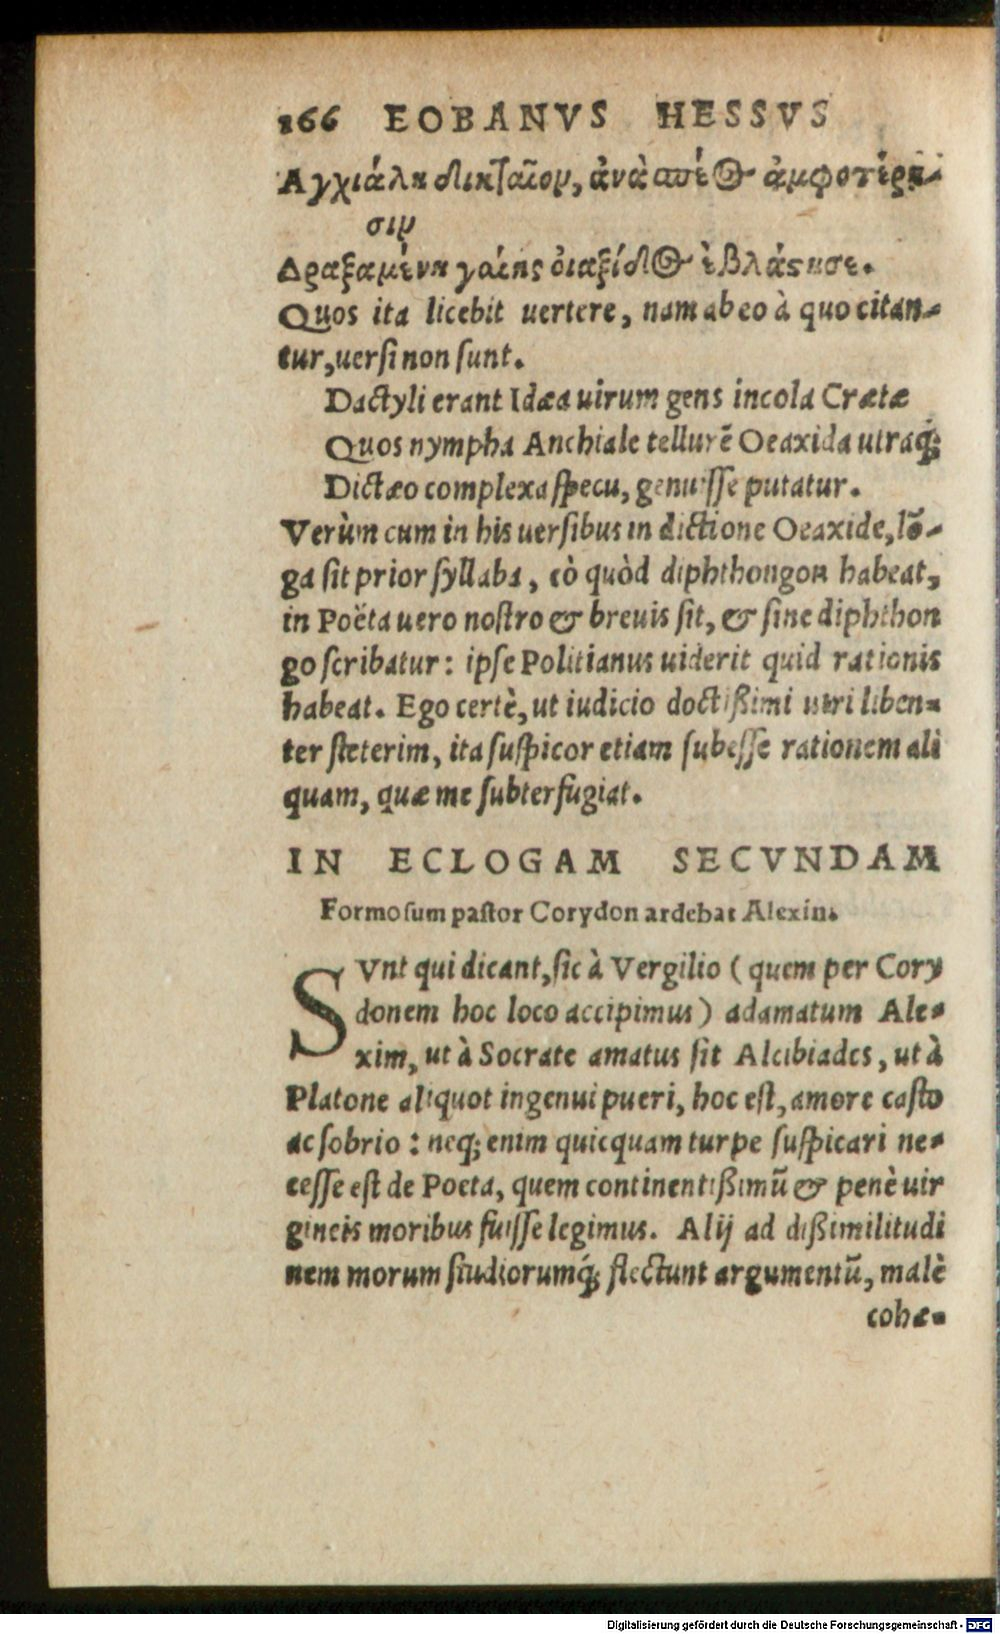 166 EOBANVS HESSVS
Αγχιάλη δικταῖον, ἀνὰ σπέος ἀμφοτέρῃ-
σιν
Δραξαμένη γαίης οἰαξίδος ἐβλάστησε.
Quos ita licebit uertere, nam ab eo à quo citan-
tur, uersi non sunt.
Dactyli erant Idæa uirum gens incola Cretæ
Quos nympha Anchiale tellurẽ Oeaxida utraq́;
Dictæo complexa specu, genuisse putatur.
Verùm cum in his uersibus in dictione Oeaxide, lõ-
ga sit prior syllaba, eò quòd diphthongon habeat,
in Poëta uero nostro & breuis sit, & sine diphthon
go scribatur: ipse Politianus uiderit quid rationis
habeat. Ego certè, ut iudicio doctißimi uiri liben-
ter steterim, ita suspicor etiam subesse rationem ali
quam, quæ me subterfugiat.
IN ECLOGAM SECVNDAM
Formosum pastor Corydon ardebat Alexin.
SVnt qui dicant, sic à Vergilio (quem per Cory
donem hoc loco accipimus) adamatum Ale-
xim, ut à Socrate amatus sit Alcibiades, ut à
Platone aliquot ingenui pueri, hoc est, amore casto
ac sobrio: neq; enim quicquam turpe suspicari ne-
cesse est de Poeta, quem continentißimũ & penè uir
gineis moribus fuisse legimus. Alij ad dißimilitudi
nem morum studiorumq́; flectunt argumentũ, malè
cohæ-
Digitalisierung gefördert durch die Deutsche Forschungsgemeinschaft - DFG